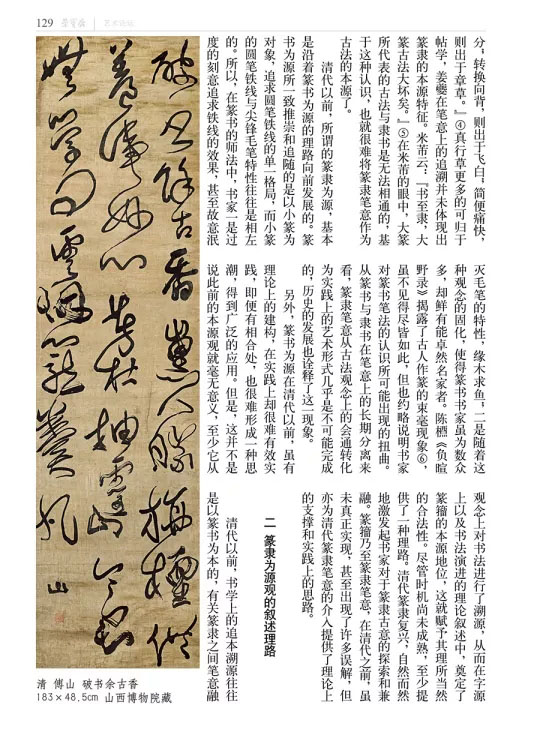 129 荣宝斋 艺术论坛
分,转换向背,则出于飞白;简便痛快,
则出于章草。』④真行草更多的可归于
帖学,姜夔在笔意上的追溯并未体现出
篆隶的本源特征。米芾云:『书至隶,大
篆古法大坏矣。』⑤在米芾的眼中,大篆
所代表的古法与隶书是无法相通的,基
于这种认识,也就很难将篆隶笔意作为
古法的本源了。
清代以前,所谓的篆隶为源,基本
是沿着篆书为源的理路向前发展的。篆
书为源所一致推崇和追随的是以小篆为
对象,追求圆笔铁线的单一格局,而小篆
的圆笔铁线与尖锋毛笔特性往往是相左
的。所以,在篆书的师法中,书家一是过
度的刻意追求铁线的效果,甚至故意泯
灭毛笔的特性,缘木求鱼,二是随着这
种观念的固化,使得篆书书家虽为数众
多,却鲜有能卓然名家者。陈槱《负暄
野录》揭露了古人作篆的束毫现象⑥,
虽不见得尽皆如此,但也约略说明书家
对篆书笔法的认识所可能出现的扭曲。
从篆书与隶书在笔意上的长期分离来
看,篆隶笔意从古法观念上的会通转化
为实践上的艺术形式几乎是不可能完成
的,历史的发展也诠释了这一现象。
另外,篆书为源在清代以前,虽有
理论上的建构,在实践上却很难有效实
践,即便有相合处,也很难形成一种思
潮,得到广泛的应用。但是,这并不是
说此前的本源观就毫无意义,至少它从
观念上对书法进行了溯源,从而在字源
上以及书法演进的理论叙述中,奠定了
篆籀的本源地位,这就赋予其理所当然
的合法性。尽管时机尚未成熟,至少提
供了一种理路。清代篆隶复兴,自然而然
地激发起书家对于篆隶古意的探索和兼
融。篆籀乃至篆隶笔意,在清代之前,虽
未真正实现,甚至出现了许多误解,但
亦为清代篆隶笔意的介入提供了理论上
的支撑和实践上的思路。
二 篆隶为源观的叙述理路
清代以前,书学上的追本溯源往往
是以篆书为本的,有关篆隶之间笔意融
破书余古香
山
清 傅山 破书余古香
183×48.5cm 山西博物院藏